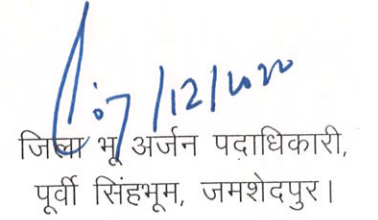 07/12/2020
जिला भू अर्जन पदाधिकारी,
पूर्वी सिंहभूम, जमशेदपुर।